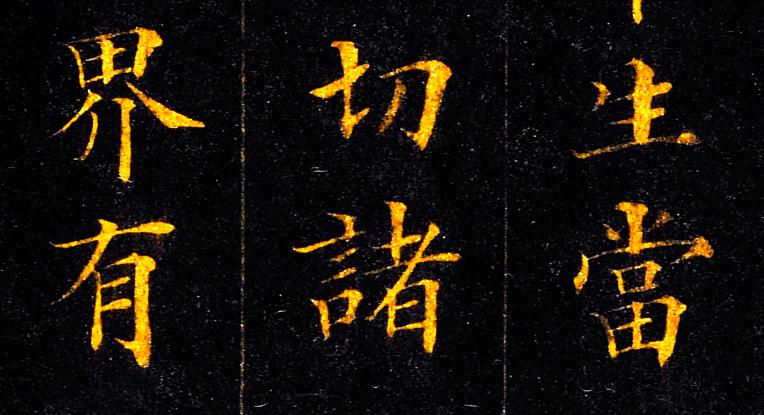 生當
切諸
界有